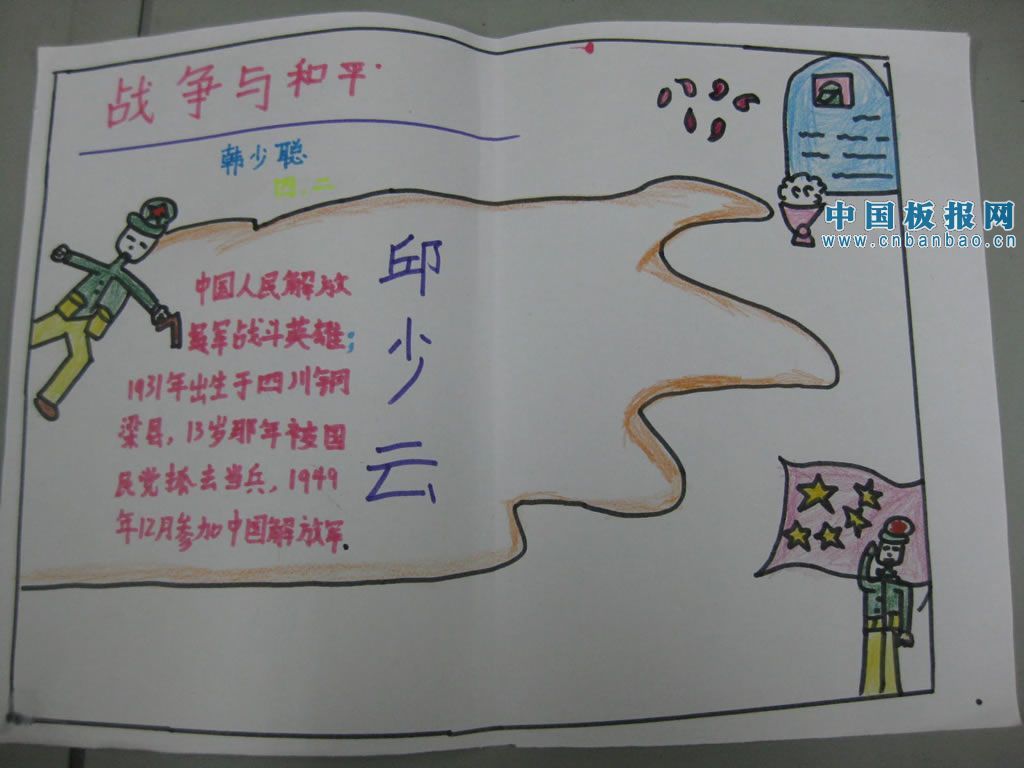 战争与和平.
韩少聪
四.二
邱少云
中国人民解放
军战斗英雄;
1931年出生于四川铜
梁县,13岁那年被国
民党搽去当兵,1949
年12月参加中国解放军.
中国板报网
www.cnbanbao.cn